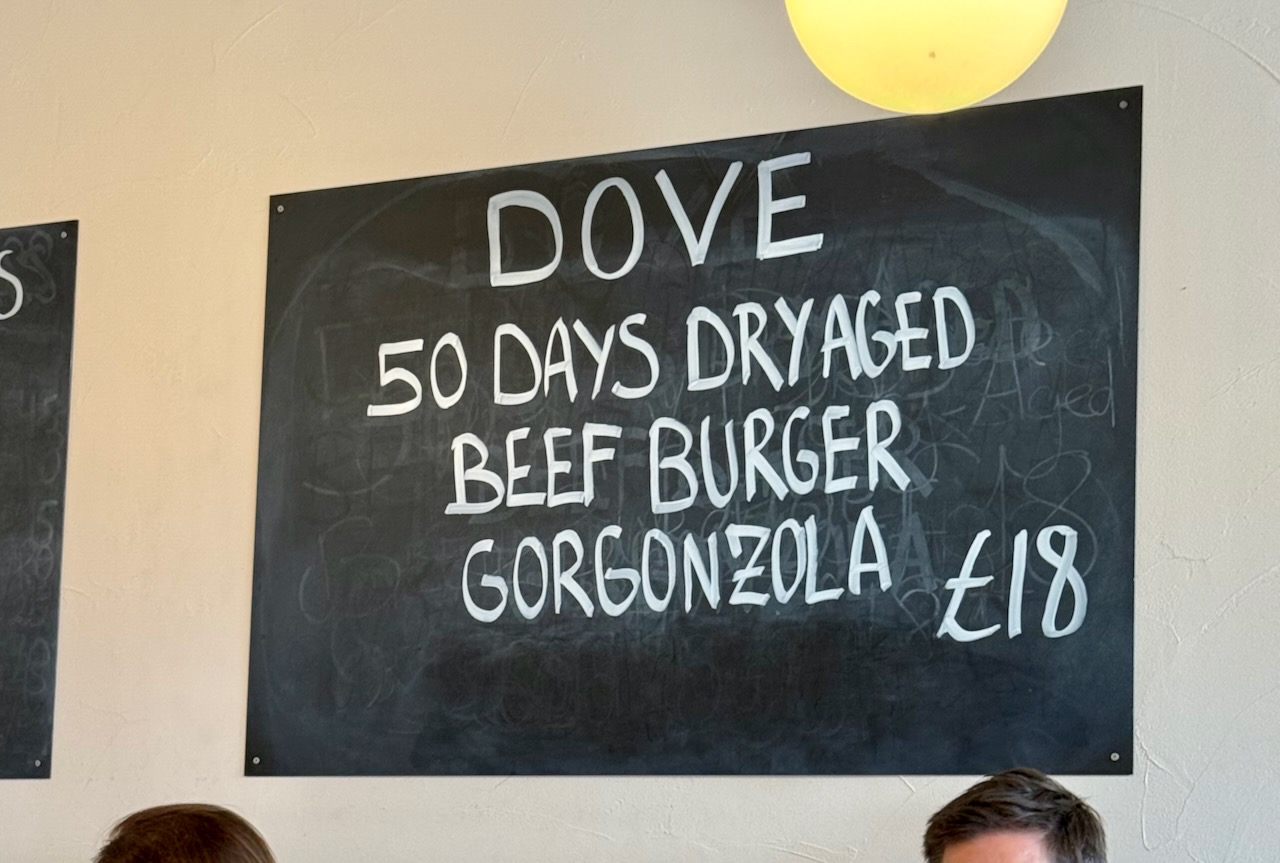 DOVE
50 DAYS DRY AGED
BEEF BURGER
GORGONZOLA £18
S